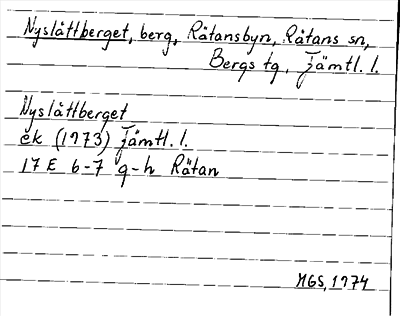 Nyslåttberget, berg, Rätansbyn, Rätans sn,
Bergs tg, Jämtl. l.
Nyslåttberget
ek (1973) Jämtl. l.
17 E 6-7 g-h Rätan
MGS, 1974